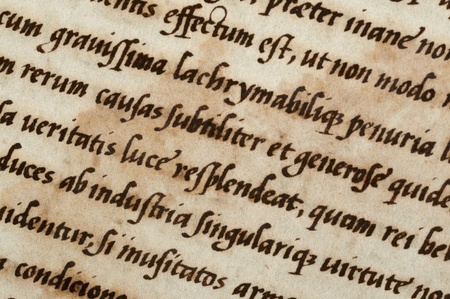 effectum est, præter inane non
cum grauissima lachrymabiliq; penuria
rerum causas subtiliter et generose quide
ueritatis luce resplendeat, quam rei bel
duces ab industria singulariq; uirtute non
uidentur, si inusitatos arm
condicione
ut non modo